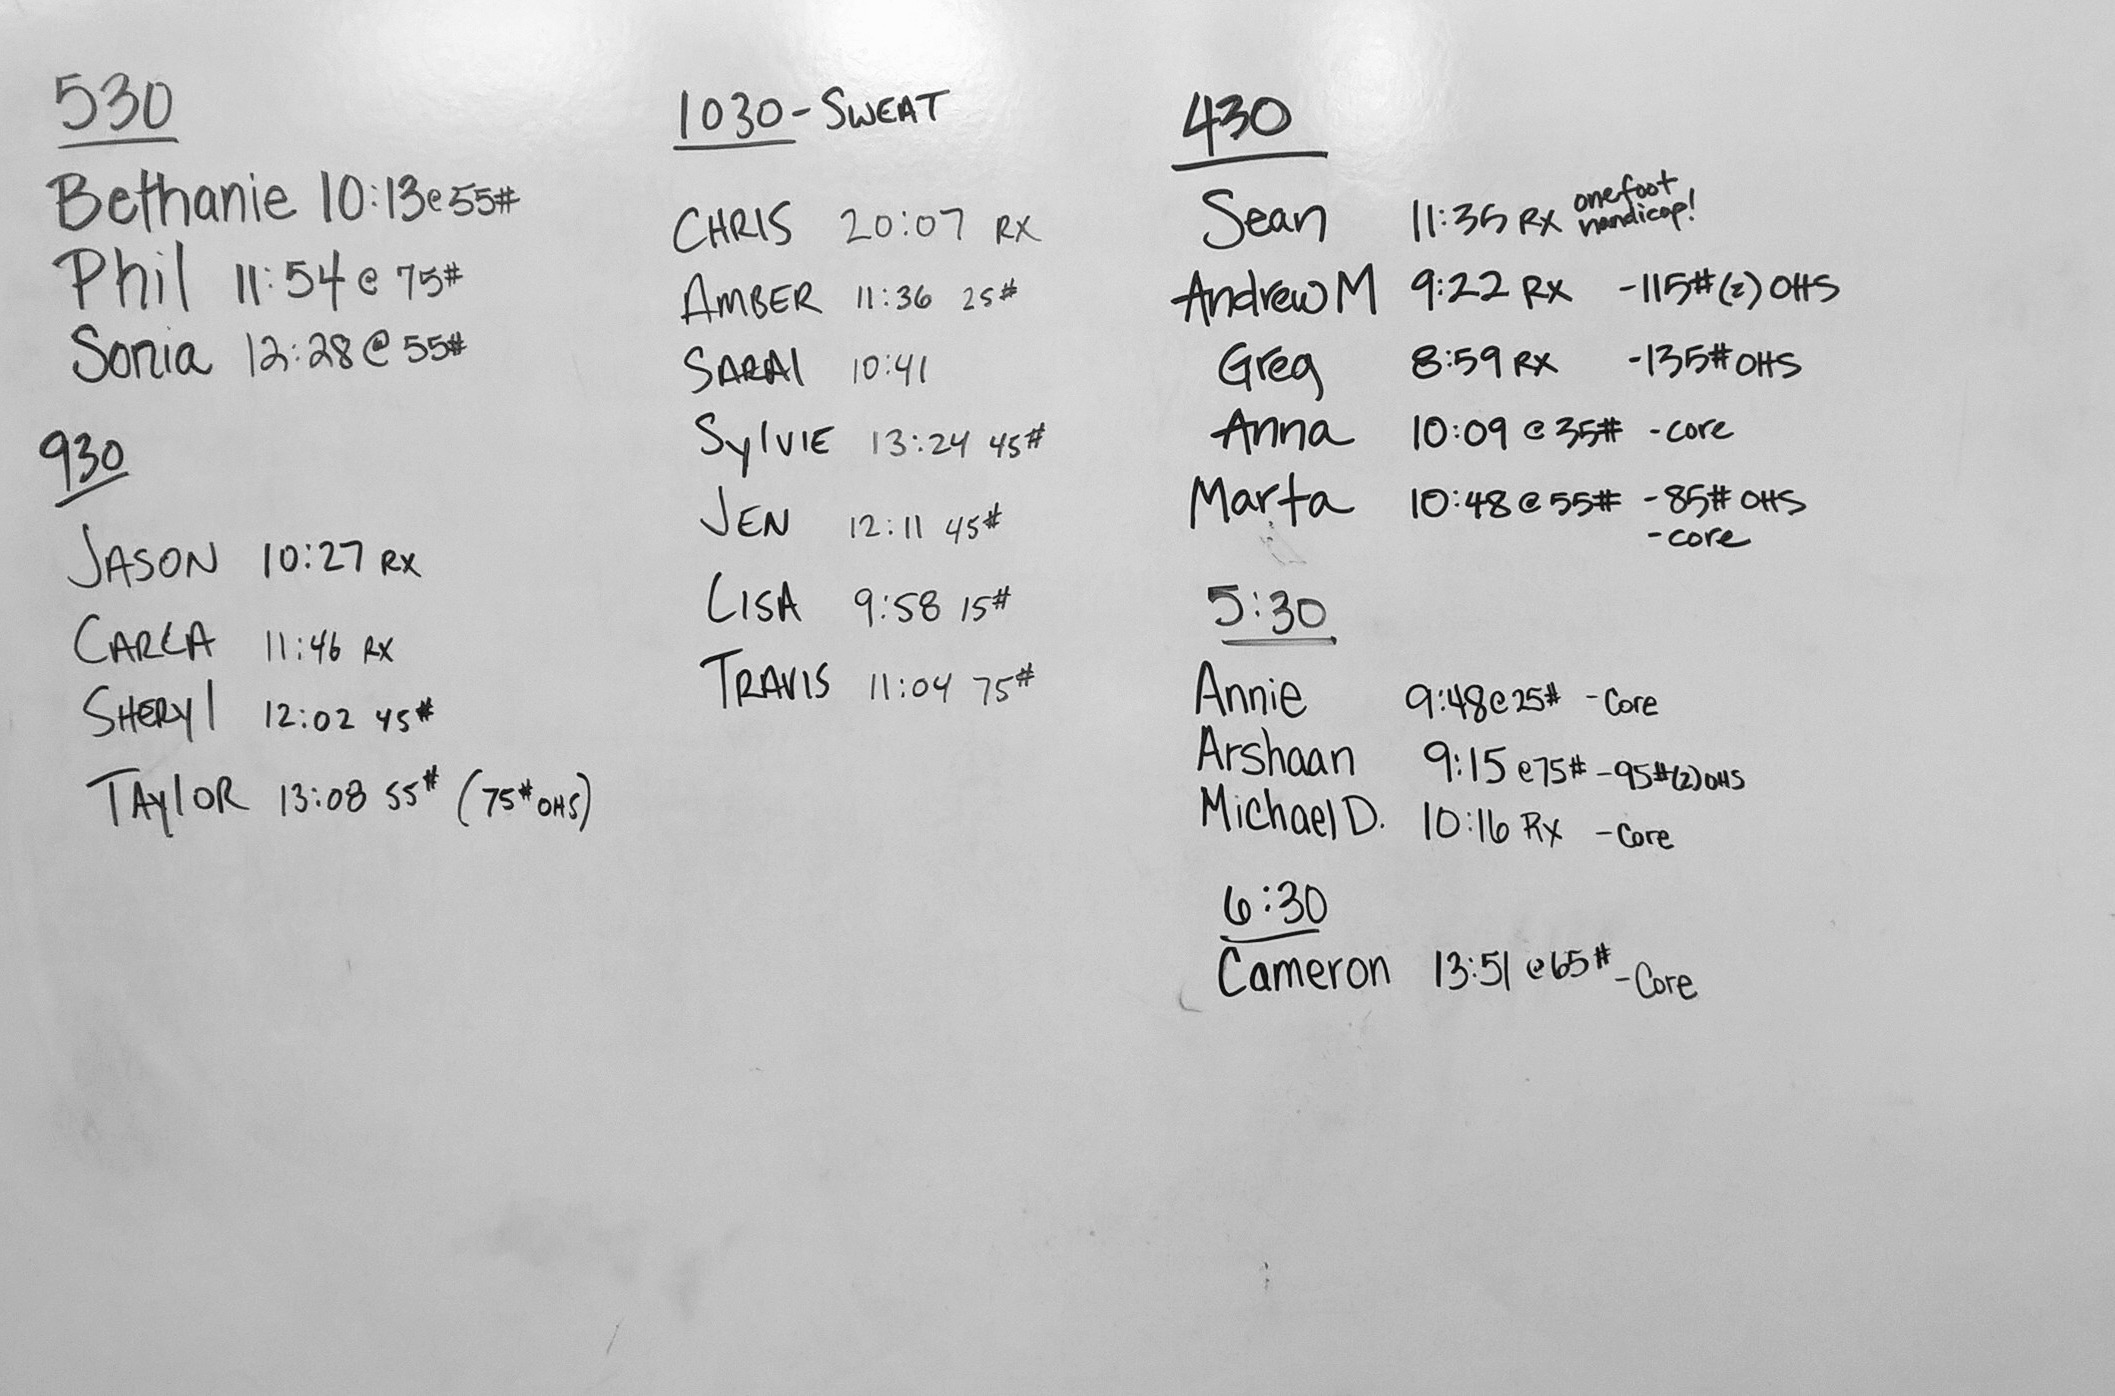 530
Bethanie 10:13@55#
Phil 11:54@ 75#
Sonia 12:28@ 55#
930
JASON 10:27 RX
CARLA 11:46 RX
SHERYl 12:02 45#
TAYlOR 13:08 55# (75# OHS)
1030-SWEAT
CHRIS 20:07 RX
AMBER 11:36 25#
SARAI 10:41
SYlVIE 13:24 45#
JEN 12:11 45#
LISA 9:58 15#
TRAVIS 11:04 75#
430
Sean 11:35 RX one foot
handicap!
Andrew M 9:22 RX -115#(2) OHS
Greg 8:59 RX -135# OHS
Anna 10:09 @ 35# -core
Marta 10:48 @ 55# -85# OHS
-core
5:30
Annie 9:48@25# -Core
Arshaan 9:15 @75# -95#(2) OHS
Michael D. 10:16 Rx -Core
6:30
Cameron 13:51 @65# -Core